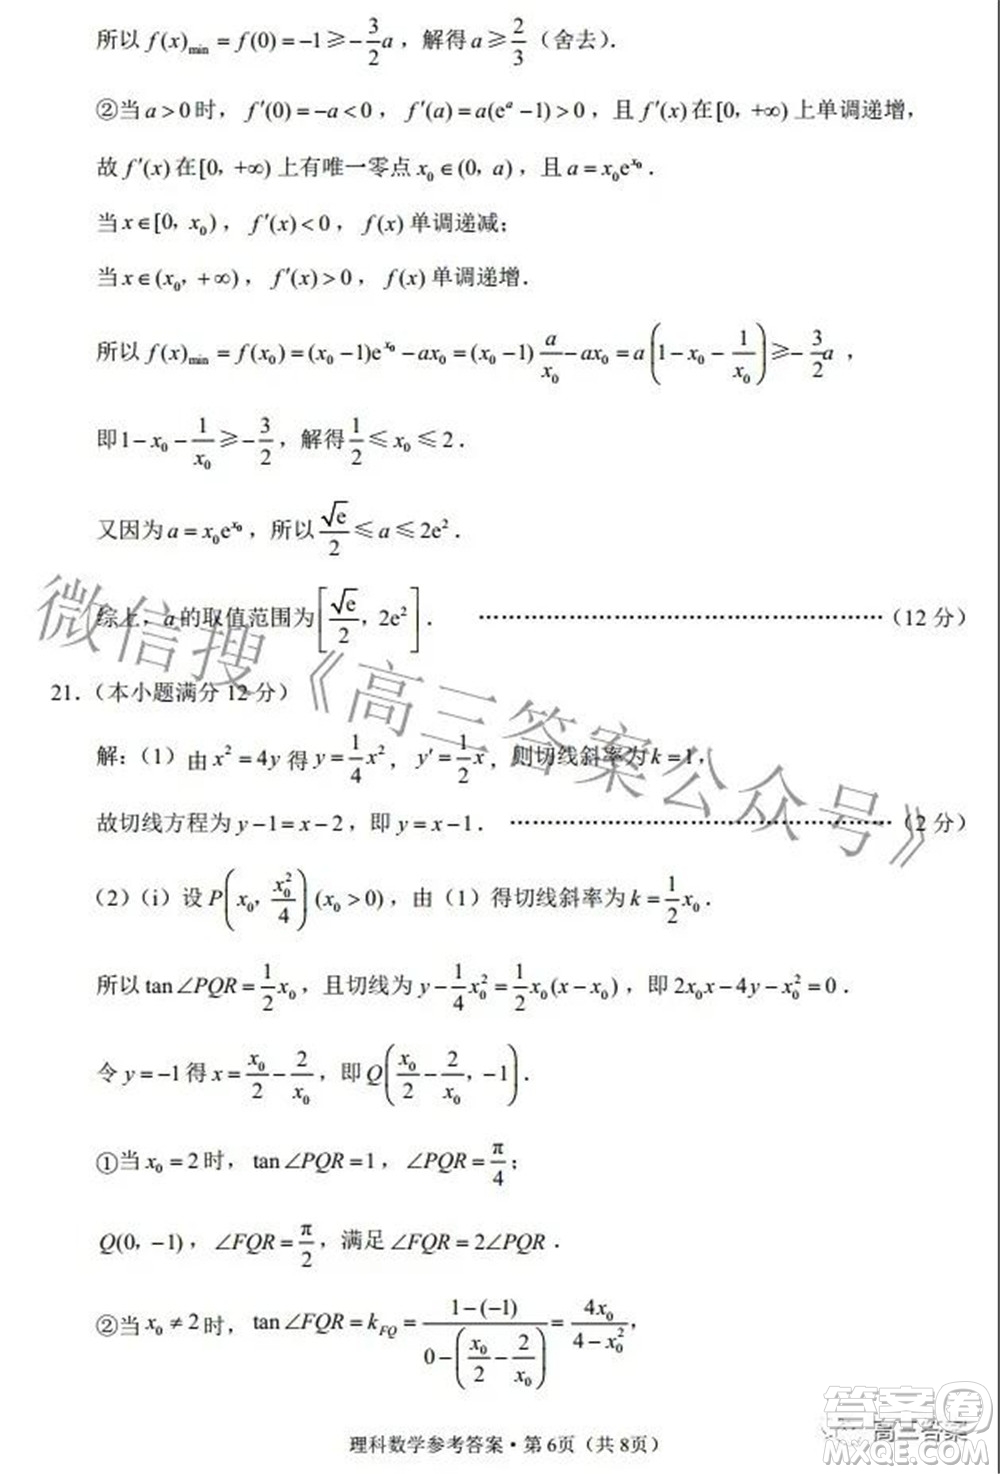 所以 f(x)min = f(0) = −1 ≥ −3/2 a，解得 a ≥ 2/3（舍去）.
②当 a > 0 时， f′(0) = −a < 0 ， f′(a) = a(e^a − 1) > 0 ，且 f′(x) 在 [0，+∞) 上单调递增，
故 f′(x) 在 [0，+∞) 上有唯一零点 x₀ ∈ (0，a)，且 a = x₀e^{x₀} .
当 x ∈ [0，x₀) ， f′(x) < 0 ， f(x) 单调递减；
当 x ∈ (x₀，+∞) ， f′(x) > 0 ， f(x) 单调递增.
所以 f(x)min = f(x₀) = (x₀ − 1)e^{x₀} − ax₀ = (x₀ − 1) a/x₀ − ax₀ = a(1 − x₀ − 1/x₀) ≥ −3/2 a ，
即 1 − x₀ − 1/x₀ ≥ −3/2 ，解得 1/2 ≤ x₀ ≤ 2 .
又因为 a = x₀e^{x₀} ，所以 √e/2 ≤ a ≤ 2e² .
综上，a 的取值范围为 [√e/2，2e²] . ……………………………………………（12 分）
21．（本小题满分 12 分）
解：（1）由 x² = 4y 得 y = 1/4 x² ， y′ = 1/2 x ，则切线斜率为 k = 1，
故切线方程为 y − 1 = x − 2 ，即 y = x − 1 . ……………………………………………（2 分）
（2）（i）设 P(x₀，x₀²/4) (x₀ > 0) ，由（1）得切线斜率为 k = 1/2 x₀ .
所以 tan∠PQR = 1/2 x₀ ，且切线为 y − 1/4 x₀² = 1/2 x₀(x − x₀) ，即 2x₀x − 4y − x₀² = 0 .
令 y = −1 得 x = x₀/2 − 2/x₀ ，即 Q(x₀/2 − 2/x₀，−1) .
①当 x₀ = 2 时， tan∠PQR = 1 ， ∠PQR = π/4 ；
Q(0，−1) ， ∠FQR = π/2 ，满足 ∠FQR = 2∠PQR .
②当 x₀ ≠ 2 时， tan∠FQR = k_{FQ} = (1 − (−1))/(0 − (x₀/2 − 2/x₀)) = 4x₀/(4 − x₀²)，
理科数学参考答案·第 6页（共 8页）
微信搜《高三答案公众号》
答案卷
高三答案